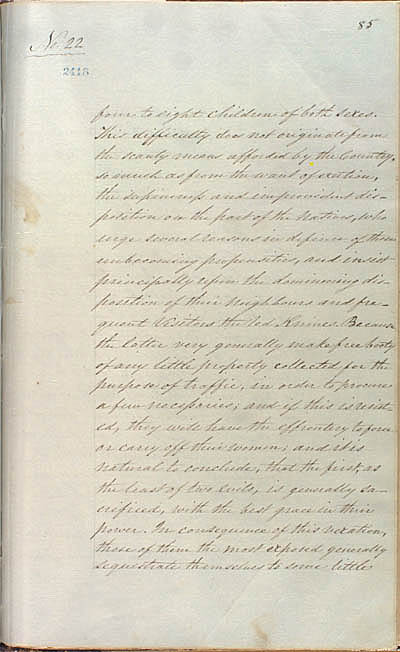 85
No. 22
2418
four to eight children of both sexes.
This difficulty does not originate from
the scanty means afforded by the Country,
so much as from the want of exertion,
the supineness and improvident dis-
position on the part of the Natives, who
urge several reasons in defence of these
unbecoming propensities, and insist
principally upon the domineering dis-
position of their Neighbours and fre-
quent Visitors the Red Knives. Because
the latter very generally make free booty
of any little property collected for the
purpose of traffic, in order to procure
a few necessaries; and if this is resist-
ed, they will have the effrontery to force
or carry off their women; and it is
natural to conclude, that the first, as
the least of two evils, is generally sa-
crificed, with the best grace in their
power. In consequence of this vexation,
those of them the most exposed generally
sequestrate themselves to some little